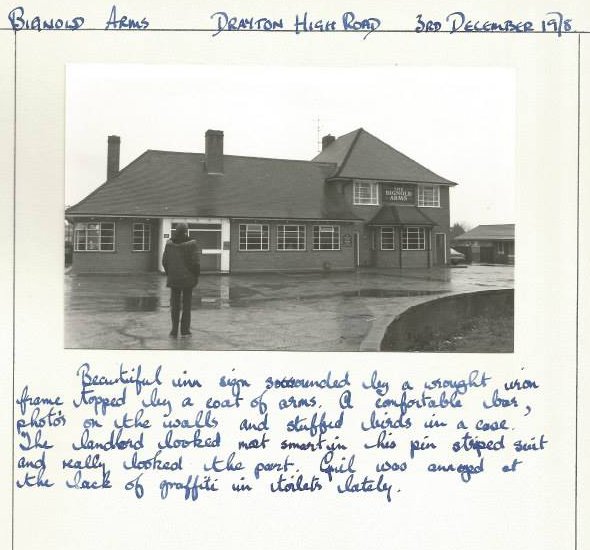 BIGNOLD ARMS DRAYTON HIGH ROAD 3RD DECEMBER 1978
THE
BIGNOLD
ARMS
Beautiful inn sign surrounded by a wrought iron
frame topped by a coat of arms. A comfortable bar,
photo's on the walls and stuffed birds in a case.
The landlord looked most smart in his pin striped suit
and really looked the part. Guil was annoyed at
the lack of graffiti in toilets lately.